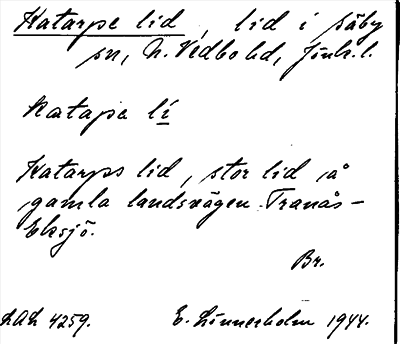 Katarpe lid, lid i Säby
sn, N. Vedbo hd, Jönk. l.
Katape lí
Katarps lid, stor lid å
gamla landsvägen Tranås-
Eksjö.
Br.
LAL 4259. E. Linnerholm 1944.